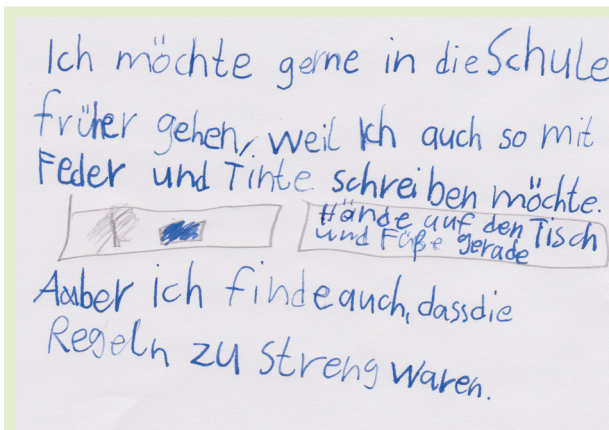 Ich möchte gerne in die Schule
früher gehen, weil Ich auch so mit
Feder und Tinte schreiben möchte.
Hände auf den Tisch
und Füße gerade
Aaber ich finde auch, dass die
Regeln zu streng waren.